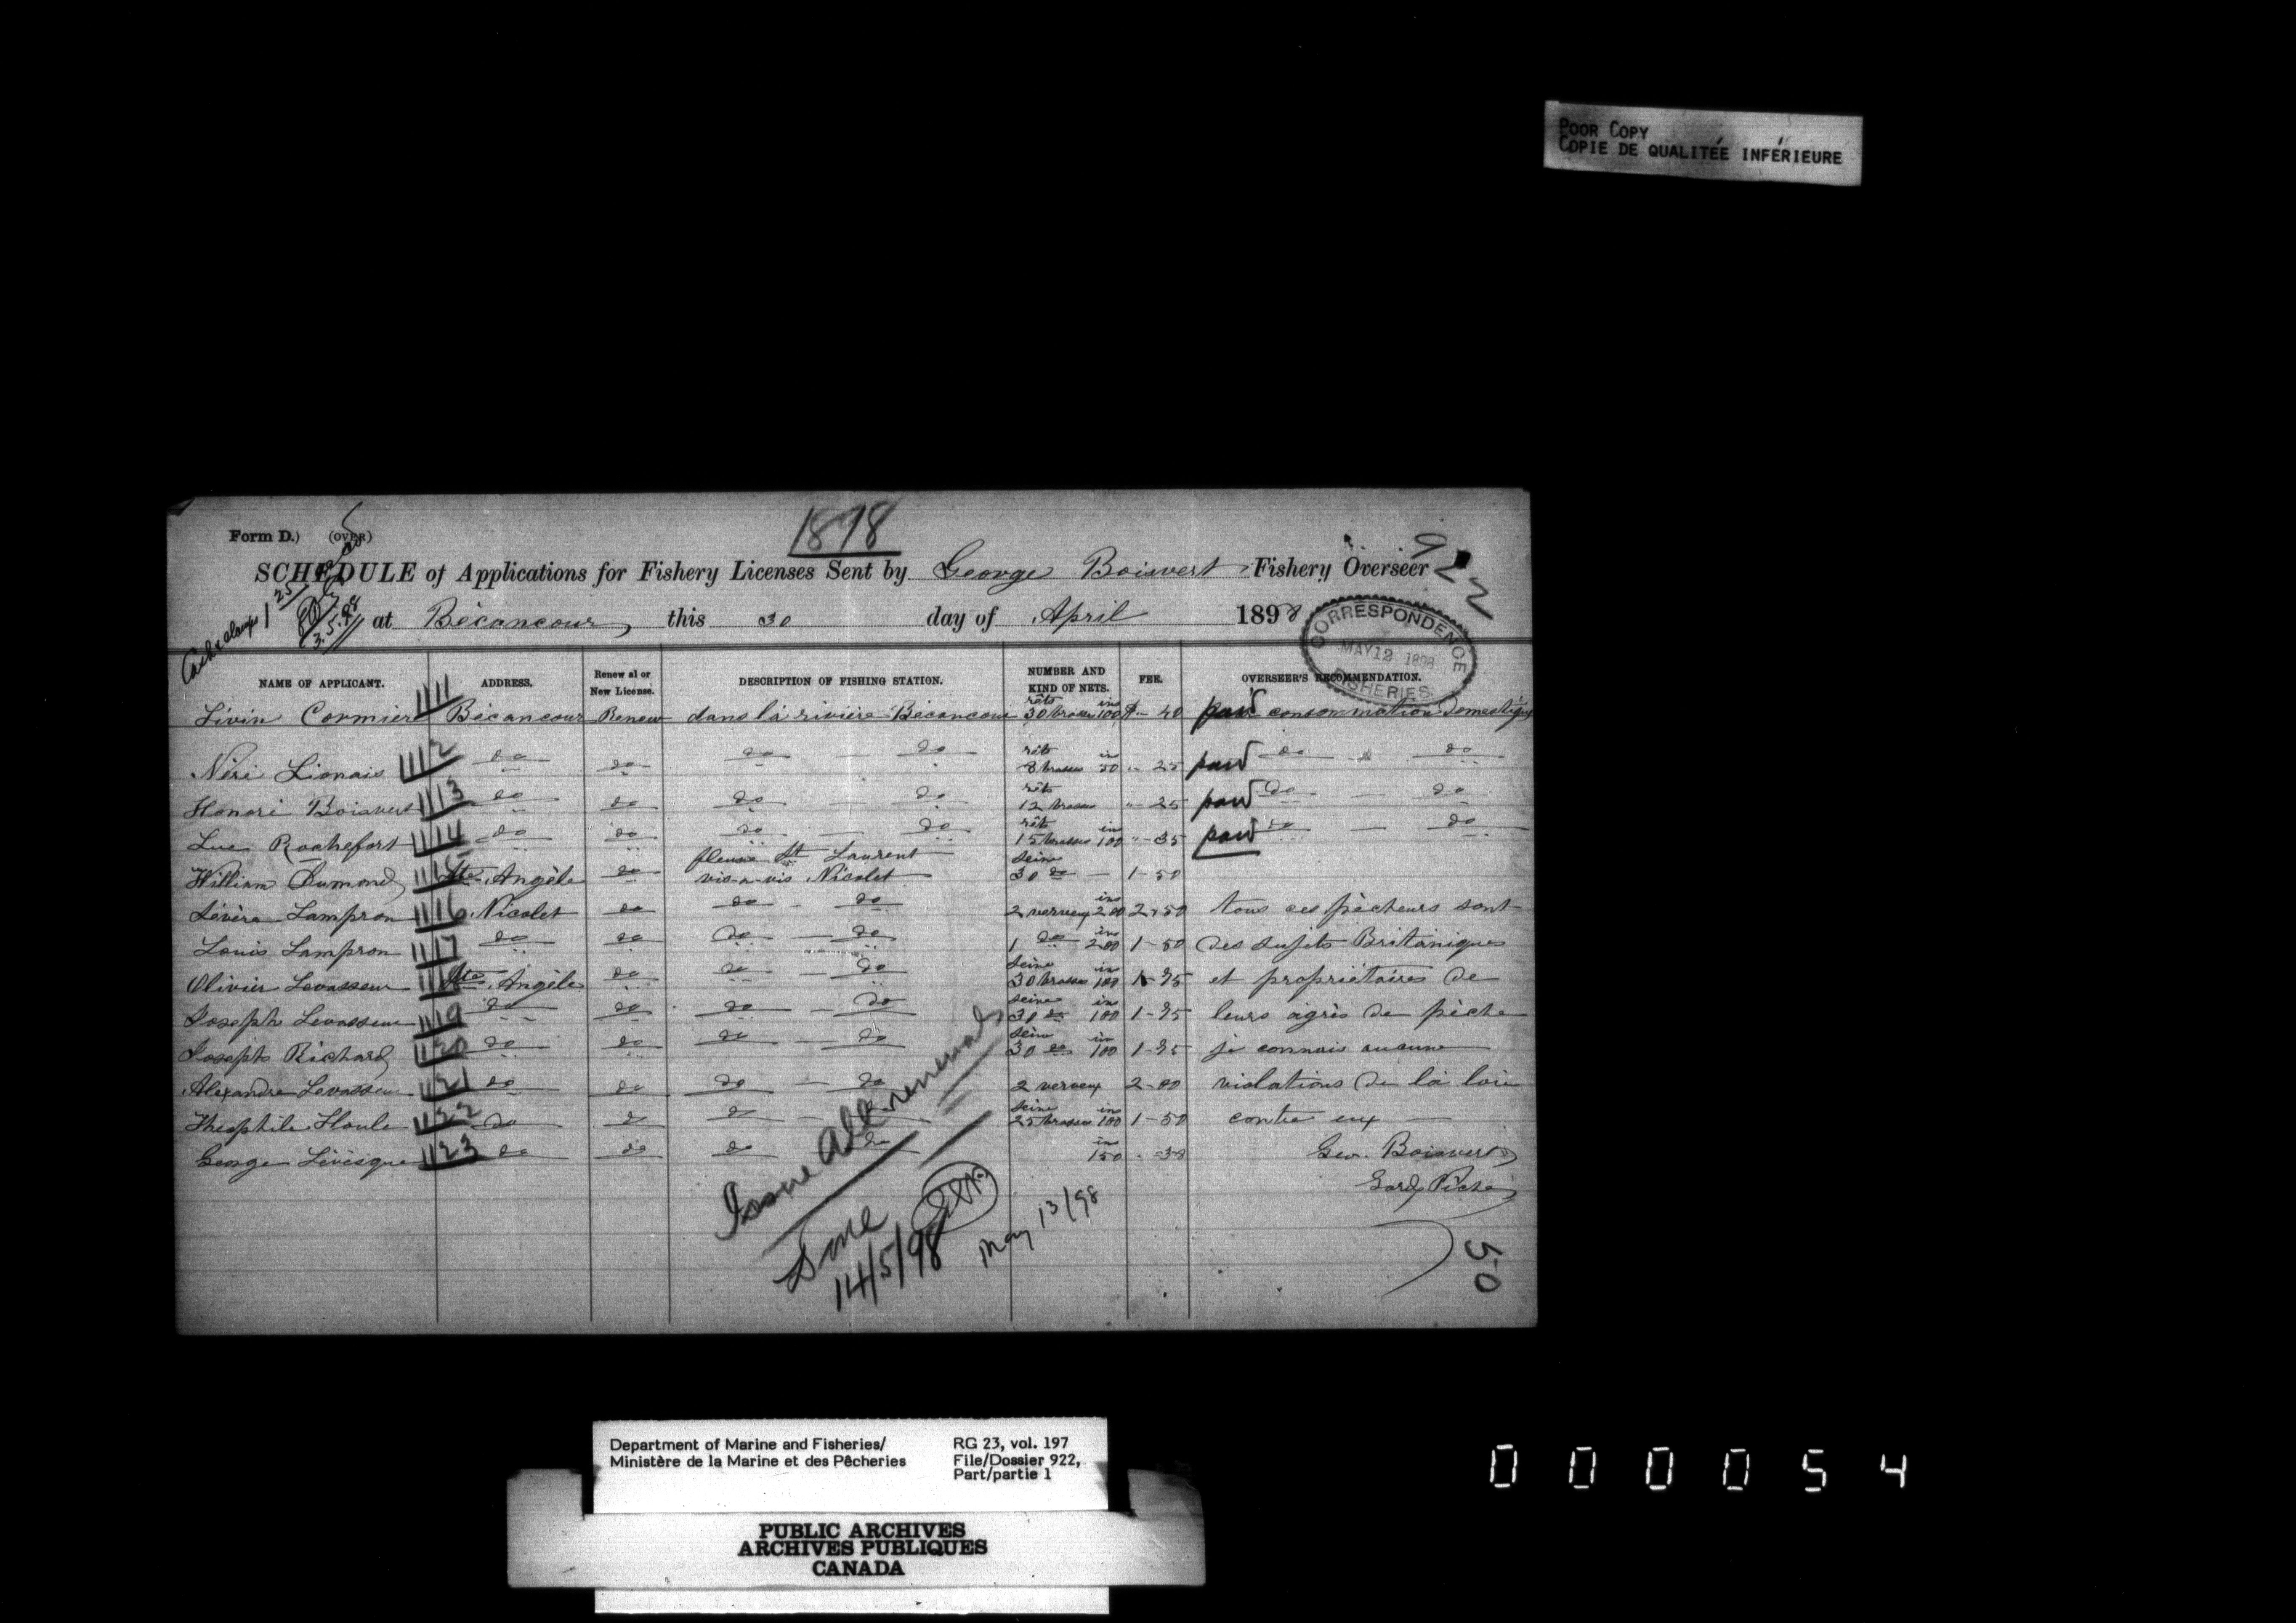 POOR COPY
COPIE DE QUALITÉE INFÉRIEURE
1898
Form D.) (OVER)
922
SCHEDULE of Applications for Fishery Licenses Sent by George Boisvert Fishery Overseer
at Bécancour, this 30 day of April 1898
3.5.98
CORRESPONDENCE
MAY 12 1898
FISHERIES.
NAME OF APPLICANT. ADDRESS. Renewal or New License. DESCRIPTION OF FISHING STATION. NUMBER AND KIND OF NETS. FEE. OVERSEER'S RECOMMENDATION.
Livin Cormier 1111 Bécancour Renew dans la rivière Bécancour rêts 30 brasses ins 100 $ - 40 paid consommation domestique
Néri Lionais 1112 do do do — do rêts 8 brasses in 50 " 25 paid do do
Honoré Boisvert 1113 do do do — do rêts 12 brasses " - 25 paid do — do
Luc Rochefort 1114 do do do — do rêt 15 brasses in 100 " - 35 paid do — do
William Dumond 1115 Ste Angèle do fleuve St Laurent vis-a-vis Nicolet seine 30 do — 1 - 50
Lampron 1116 Nicolet do do - do 2 verveux ins 200 2 - 50 tous ces pêcheurs sont
Louis Lampron 1117 do do do — do 1 do ins 200 1 - 50 des sujets Britaniques
Olivier Levasseur 1118 Ste Angèle do do — do seine 30 brasses in 100 1 - 75 et propriétaires de
Joseph Levasseur 1119 do do do — do seine 30 do ins 100 1 - 75 leurs agrès de pèche
Joseph Richard 1120 do do do — do seine 30 do in 100 1 - 75 je connais aucune
Alexandre Levasseur 1121 do do do — do 2 verveux 2 - 00 violations de la loie
Théophile Houle 1122 do do do — do seine 25 brasses ins 100 1 - 50 contre eux —
George Lévèsque 1123 do do do do ins 150 - 30 Geo. Boisvert
Gard Pèche
Issue all renewals
Done
14/5/98
May 13/98
50
Department of Marine and Fisheries/ RG 23, vol. 197
Ministère de la Marine et des Pêcheries File/Dossier 922,
Part/partie 1
000054
PUBLIC ARCHIVES
ARCHIVES PUBLIQUES
CANADA